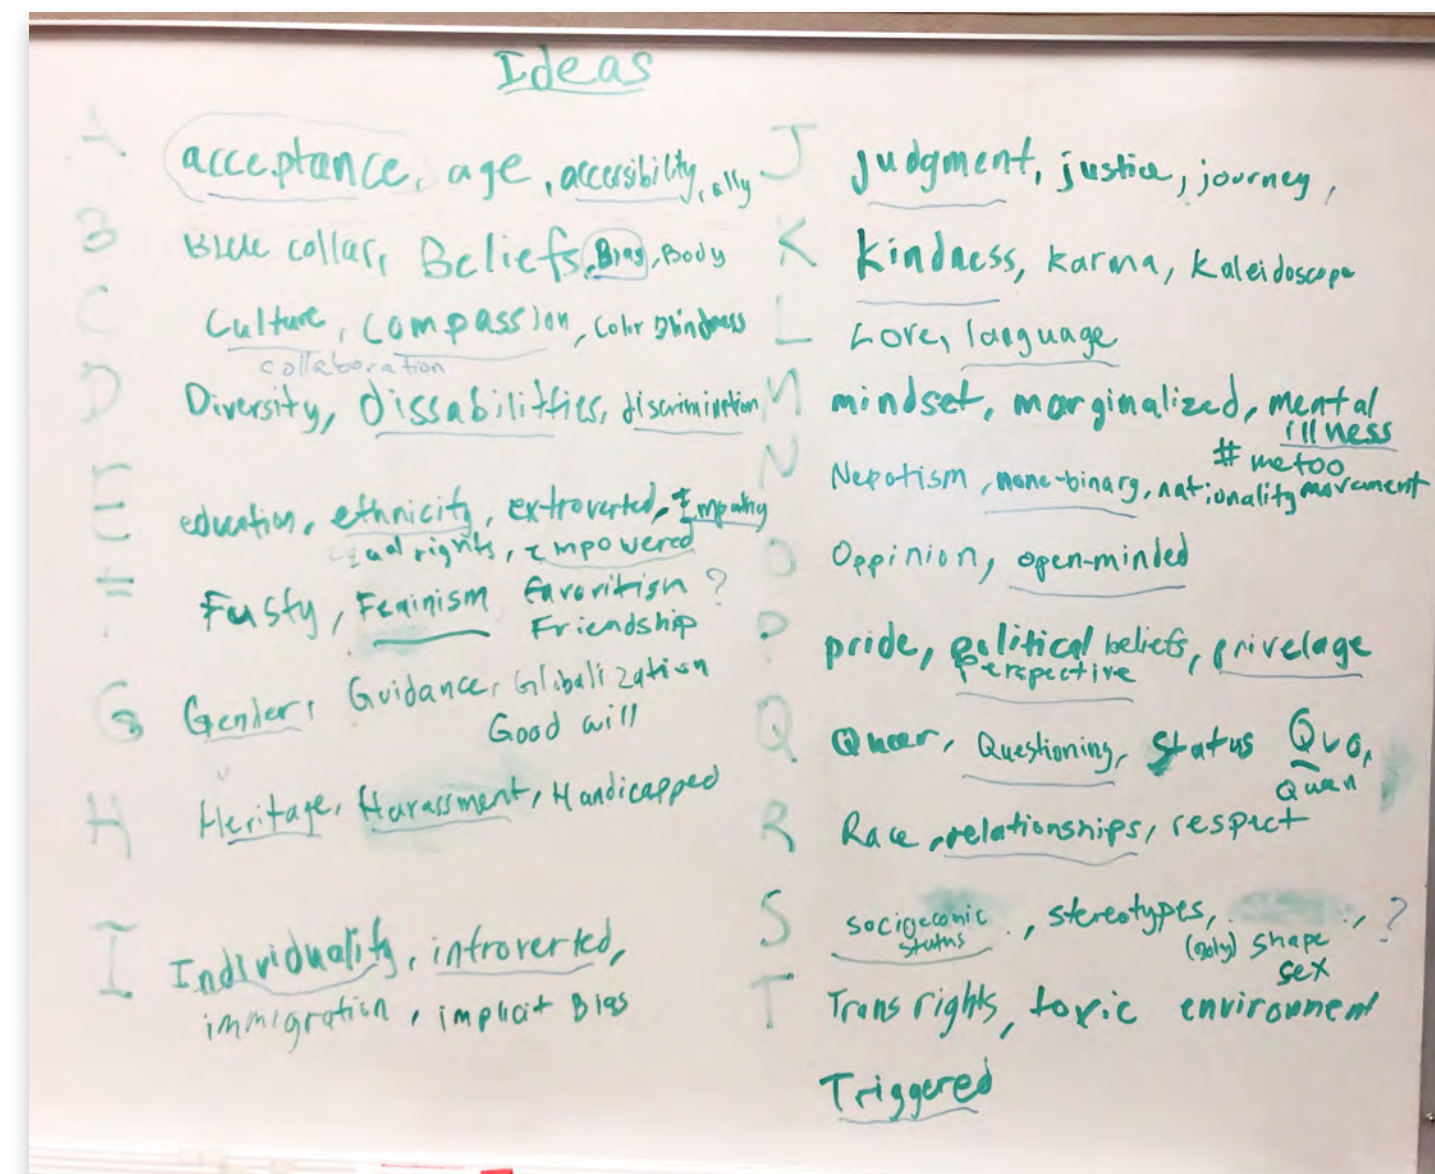 Ideas
A acceptance, age, accessibility, ally
B Blue collar, Beliefs, Bias, Body
C Culture, compassion, Color Blindness
collaboration
D Diversity, dissabilitties, discrimination
E education, ethnicity, extroverted, Empathy
equal rights, Empowered
F Fusty, Feminism favoritism ?
Friendship
G Gender, Guidance, Globalization
Good will
H Heritage, Harassment, Handicapped
I Individuality, introverted,
immigration, implicit Bias
J judgment, justice, journey,
K kindness, karma, kaleidoscope
L Love, language
M mindset, marginalized, mental
illness
# metoo
movement
N Nepotism, none-binary, nationality
O Oppinion, open-minded
P pride, political beliefs, privelage
perspective
Q Queer, Questioning, status Quo,
Quen
R Race, relationships, respect
S status
, stereotypes, , ?
shape
sex
T Trans rights, toxic environment
Triggered